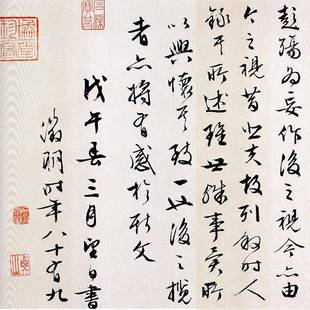 彭殤為妄作後之視今亦由
今之視昔悲夫故列敘時人
錄其所述雖世殊事異所
以興懷其致一也後之攬
者亦將有感於斯文
戊午春三月望日書
徵明時年八十有九